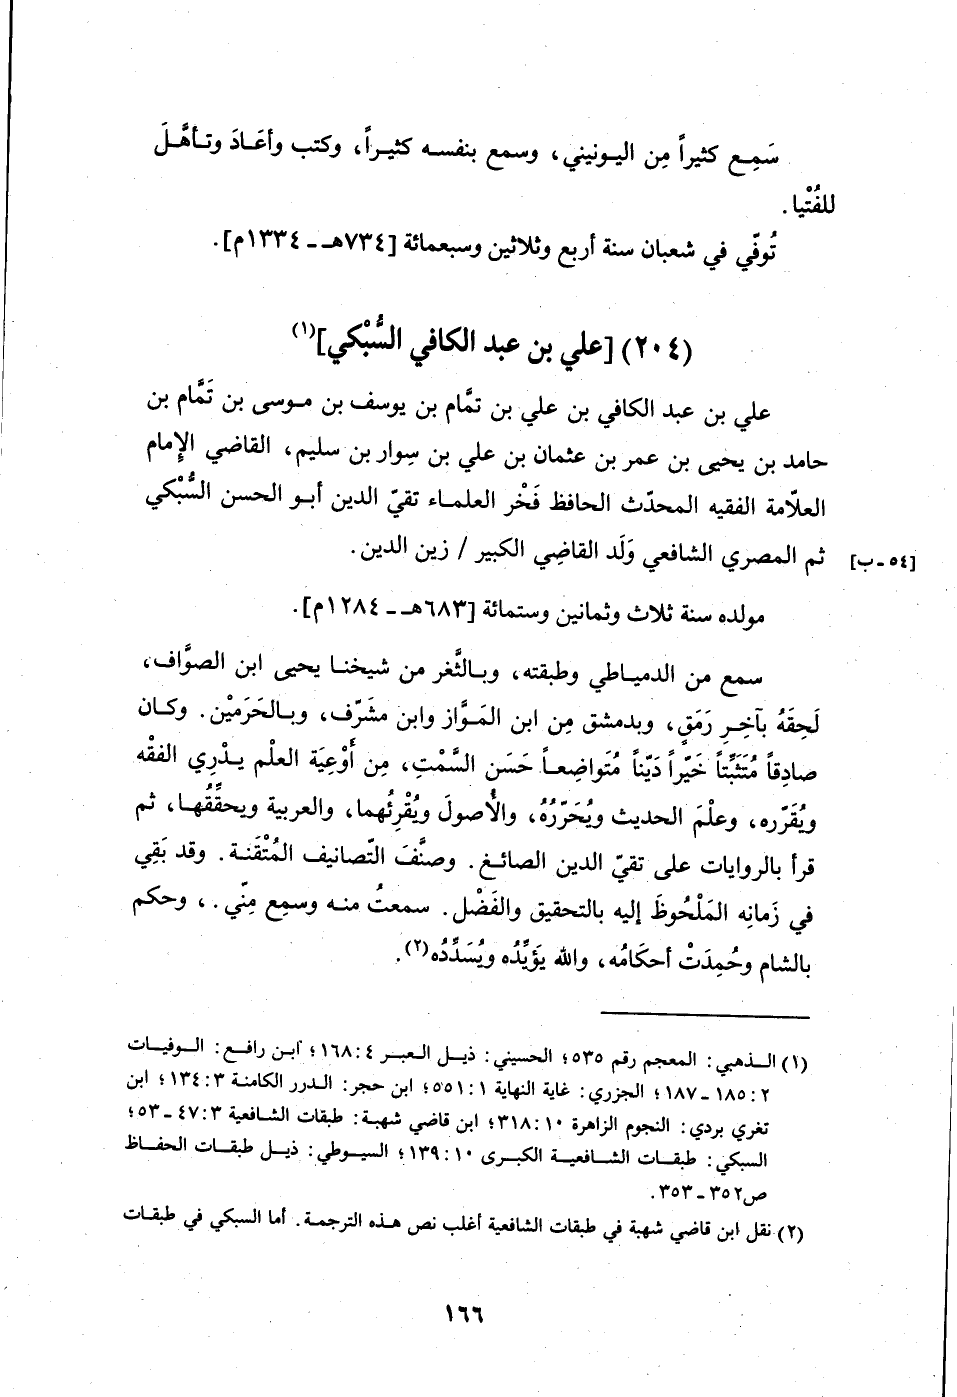 سَمِـع كثيراً مِن اليـونيني، وسمع بنفسـه كثيـراً، وكتب وأعَـادَ وتـأهَّـلَ
للفُتْيا.
تُوفّي في شعبان سنة أربع وثلاثين وسبعمائة [٧٣٤هـ - ١٣٣٤م].
(٢٠٤) [علي بن عبد الكافي السُّبْكي](١)
علي بن عبد الكافي بن علي بن تمَّام بن يوسف بن مـوسى بن تَمَّام بن
حامد بن يحيى بن عمر بن عثمان بن علي بن سِوار بن سليم، القاضي الإمام
العلاّمة الفقيه المحدّث الحافظ فَخْر العلمـاء تقيّ الدين أبـو الحسن السُّبْكي
ثم المصري الشافعي وَلَد القاضِي الكبير / زين الدين. [٥٤ - ب]
مولده سنة ثلاث وثمانين وستمائة [٦٨٣هـ - ١٢٨٤م].
سمع من الدميـاطي وطبقته، وبـالثَّغر من شيخنـا يحيى ابن الصوَّاف،
لَحِقَهُ بآخِـرِ رَمَقٍ، وبدمشق مِن ابن المَوَّاز وابن مشَرّف، وبـالحَرَميْن. وكـان
صادِقاً مُتَثَبِّتاً خَيّراً دَيّناً مُتَواضِعـاً حَسَن السَّمْتِ، مِن أَوْعِيَة العلْم يـدْرِي الفقْه
ويُقَرّره، وعلْمَ الحديث ويُحَرّرُهُ، والأُصولَ ويُقْرِئُهما، والعربية ويحقّقُهـا، ثم
قرأ بالروايات على تقيّ الدين الصائـغ. وصنَّفَ التّصانيف المُتْقَنـة. وقد بَقِي
في زَمانِه المَلْحُوظَ إليه بالتحقيق والفَضْل. سمعتُ منـه وسمِع مِنّي. ، وحكم
بالشام وحُمِدَتْ أحكَامُه، والله يَؤيِّدُه ويُسَدِّدُه(٢).
(١) الـذهبي: المعجم رقم ٥٣٥؛ الحسيني: ذيـل العبـر ٤:١٦٨؛ ابـن رافـع: الـوفيـات
٢:١٨٥ - ١٨٧؛ الجزري: غاية النهاية ١:٥٥١؛ ابن حجر: الدرر الكامنة ٣:١٣٤؛ ابن
تغري بردي: النجوم الزاهرة ١٠:٣١٨؛ ابن قاضي شهبة: طبقات الشافعية ٣:٤٧ - ٥٣؛
السبكي: طبقـات الشـافعيـة الكبـرى ١٠:١٣٩؛ السيـوطي: ذيـل طبقـات الحفـاظ
ص٣٥٢ - ٣٥٣.
(٢) نقل ابن قاضي شهبة في طبقات الشافعية أغلب نص هـذه الترجمـة. أما السبكي في طبقـات
١٦٦